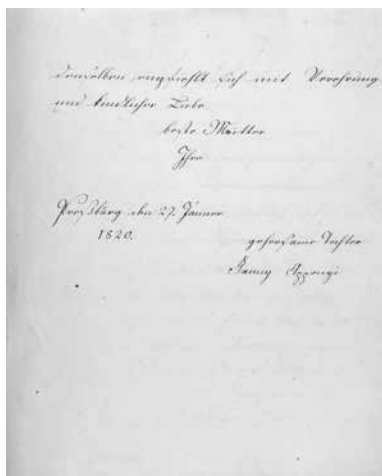 denselben empfiehlt sich mit Verehrung
und kindlicher Liebe
beste Mutter
Ihre
Pressburg den 27. Jänner
1820.
gehorsame Tochter
Fanny Apponyi